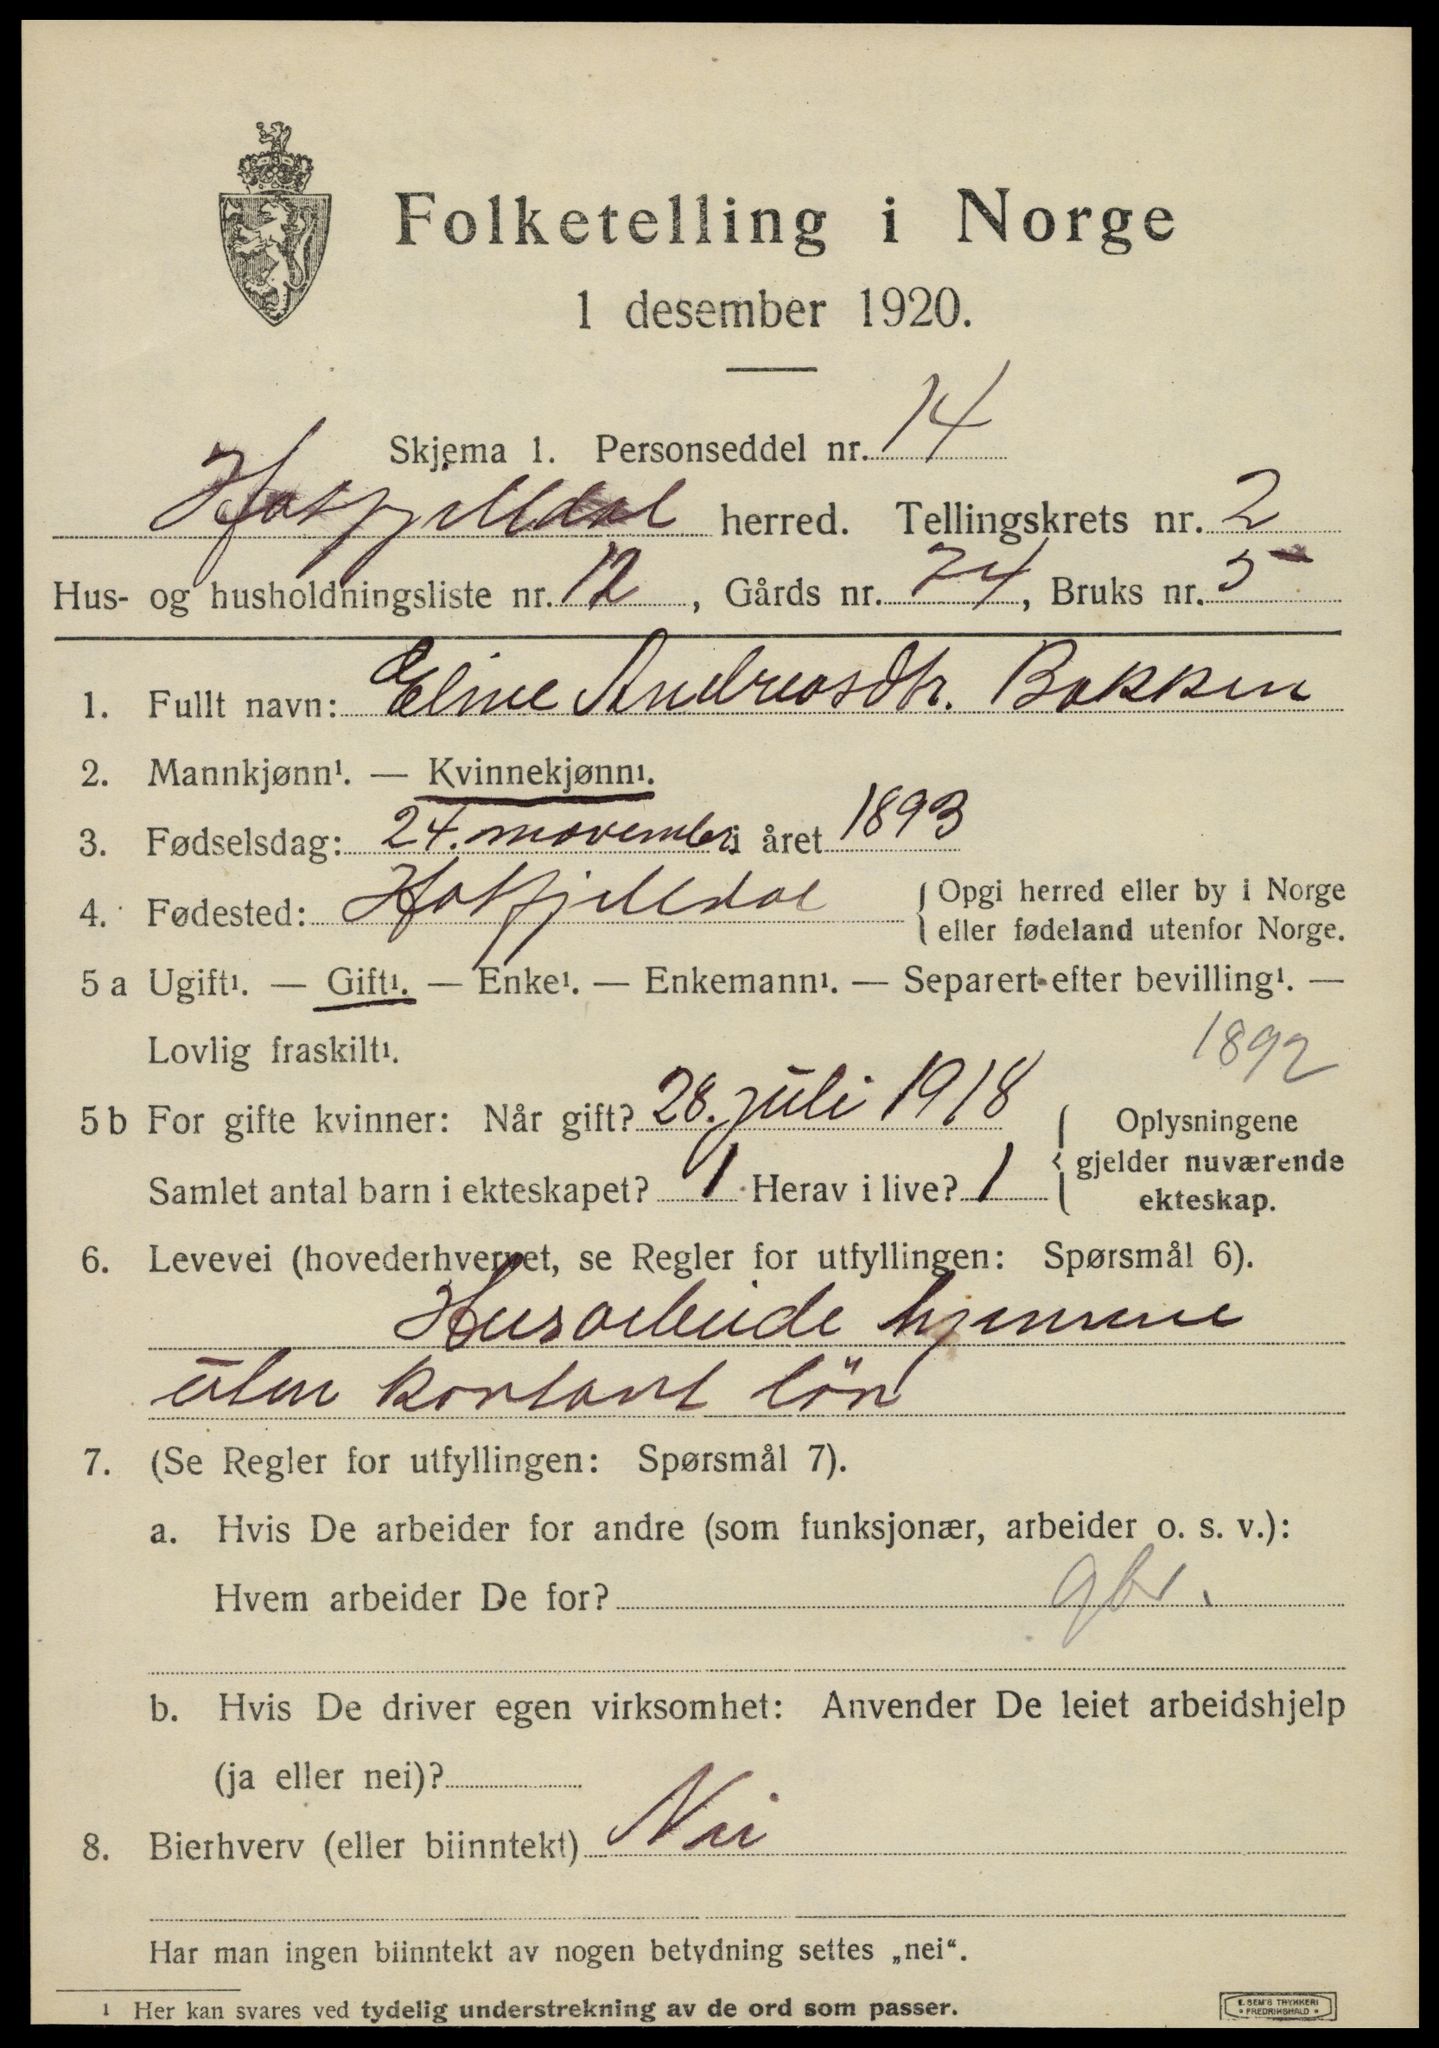 Folketelling i Norge
1 desember 1920.
Skjema 1. Personseddel nr. 14
Hatfjelldal herred. Tellingskrets nr. 2
Hus- og husholdningsliste nr. 12, Gårds nr. 74, Bruks nr. 5
1. Fullt navn: Eline Andreasdtr. Bakken
2. Mannkjønn¹. — Kvinnekjønn¹.
3. Fødselsdag: 24. november i året 1893
4. Fødested: Hatfjelldal { Opgi herred eller by i Norge
eller fødeland utenfor Norge.
5 a Ugift¹. — Gift¹. — Enke¹. — Enkemann¹. — Separert efter bevilling¹. —
Lovlig fraskilt¹.
1892
5 b For gifte kvinner: Når gift? 28. juli 1918
Samlet antal barn i ekteskapet? 1 Herav i live? 1
{ Oplysningene
gjelder nuværende
ekteskap.
6. Levevei (hovederhvervet, se Regler for utfyllingen: Spørsmål 6).
Husarbeide hjemme
uten kontant løn
7. (Se Regler for utfyllingen: Spørsmål 7).
a. Hvis De arbeider for andre (som funksjonær, arbeider o. s. v.):
Hvem arbeider De for? gbr.
b. Hvis De driver egen virksomhet: Anvender De leiet arbeidshjelp
(ja eller nei)?
8. Bierhverv (eller biinntekt) Nei
Har man ingen biinntekt av nogen betydning settes „nei“.
¹ Her kan svares ved tydelig understrekning av de ord som passer.
E. SEM'S TRYKKERI
FREDRIKSHALD